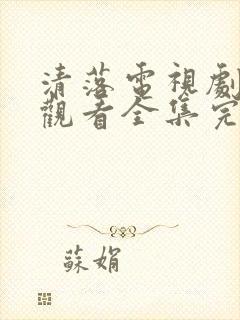 清落電視劇
觀看全集完
蘇娟